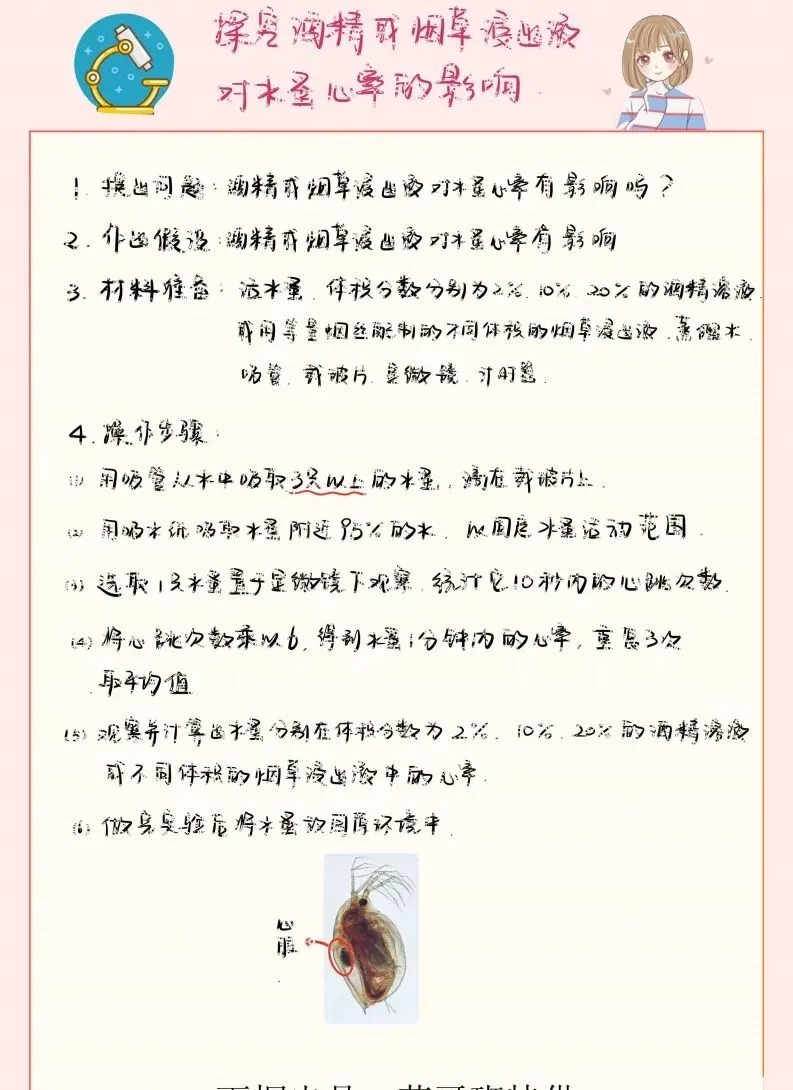 探究酒精或烟草浸出液
对水蚤心率的影响
1. 提出问题：酒精或烟草浸出液对水蚤心率有影响吗？
2. 作出假设：酒精或烟草浸出液对水蚤心率有影响
3. 材料准备：活水蚤、体积分数分别为2%、10%、20%的酒精溶液、
或用等量烟丝配制的不同体积的烟草浸出液、蒸馏水、
吸管、载玻片、显微镜、计时器.
4. 操作步骤：
(1) 用吸管从水中吸取3只以上的水蚤，滴在载玻片上.
(2) 用吸水纸吸取水蚤附近95%的水，以固定水蚤活动范围.
(3) 选取1只水蚤置于显微镜下观察，统计它10秒内的心跳次数.
(4) 将心跳次数乘以6，得到水蚤1分钟内的心率，重复3次
取平均值
(5) 观察并计算出水蚤分别在体积分数为2%、10%、20%的酒精溶液
或不同体积的烟草浸出液中的心率.
(6) 做完实验后将水蚤放回原环境中.
心
脏